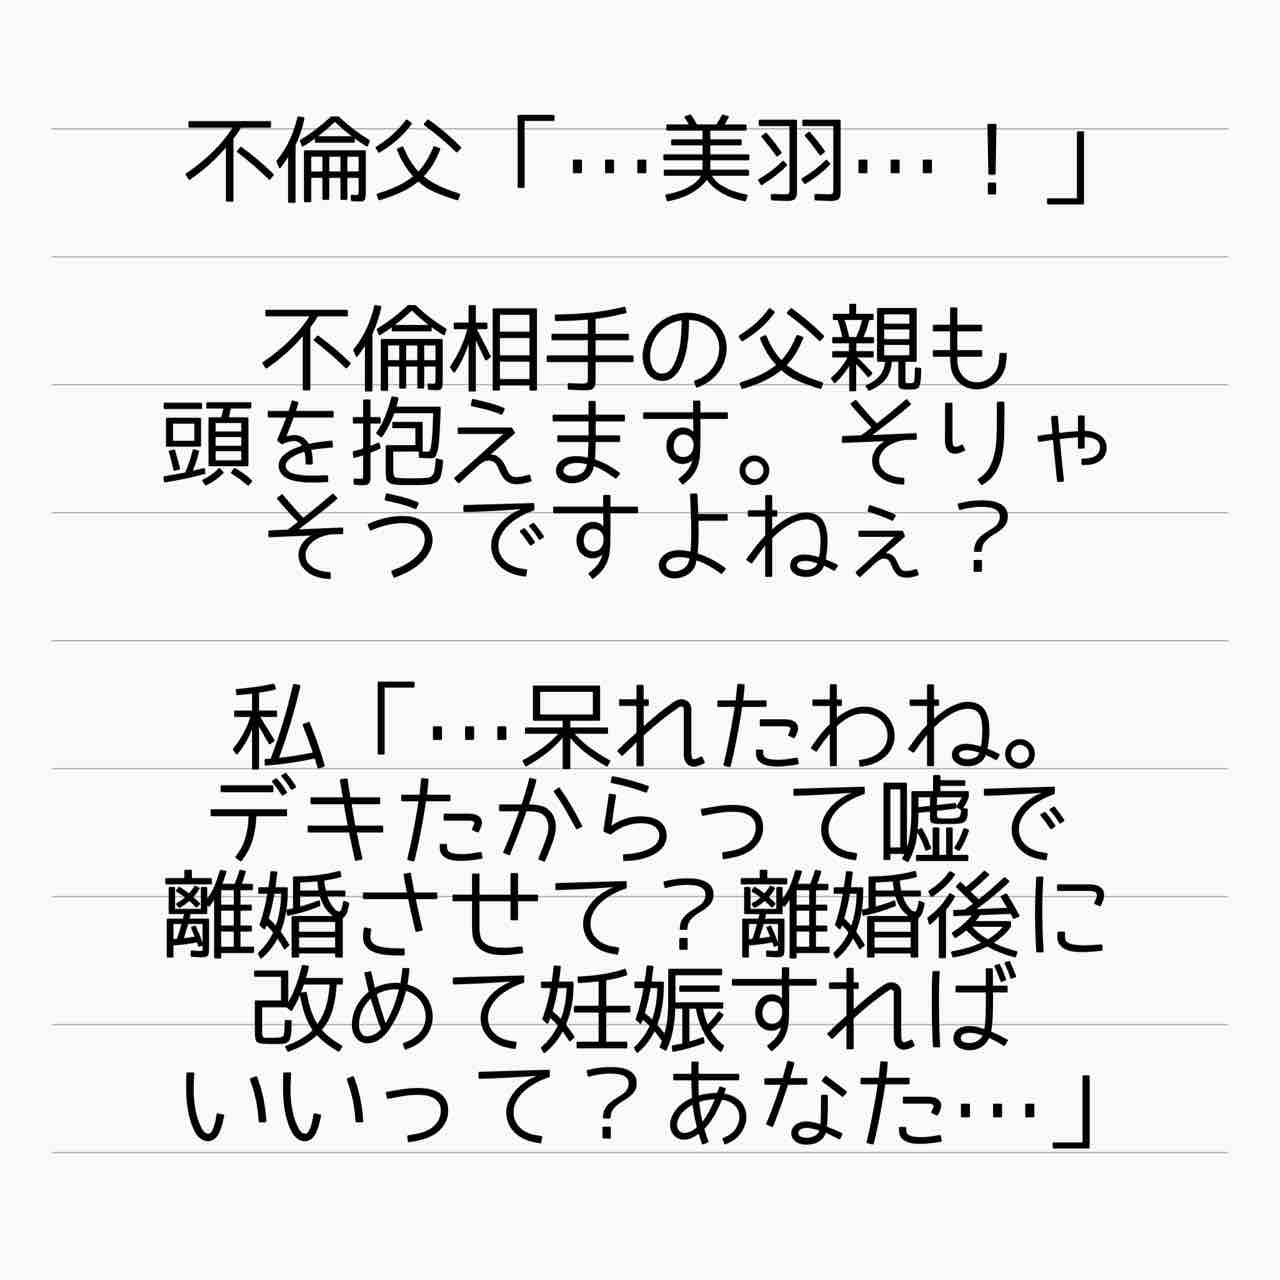 不倫父「…美羽…！」
不倫相手の父親も
頭を抱えます。そりゃ
そうですよねぇ？
私「…呆れたわね。
デキたからって嘘で
離婚させて？離婚後に
改めて妊娠すれば
いいって？あなた…」